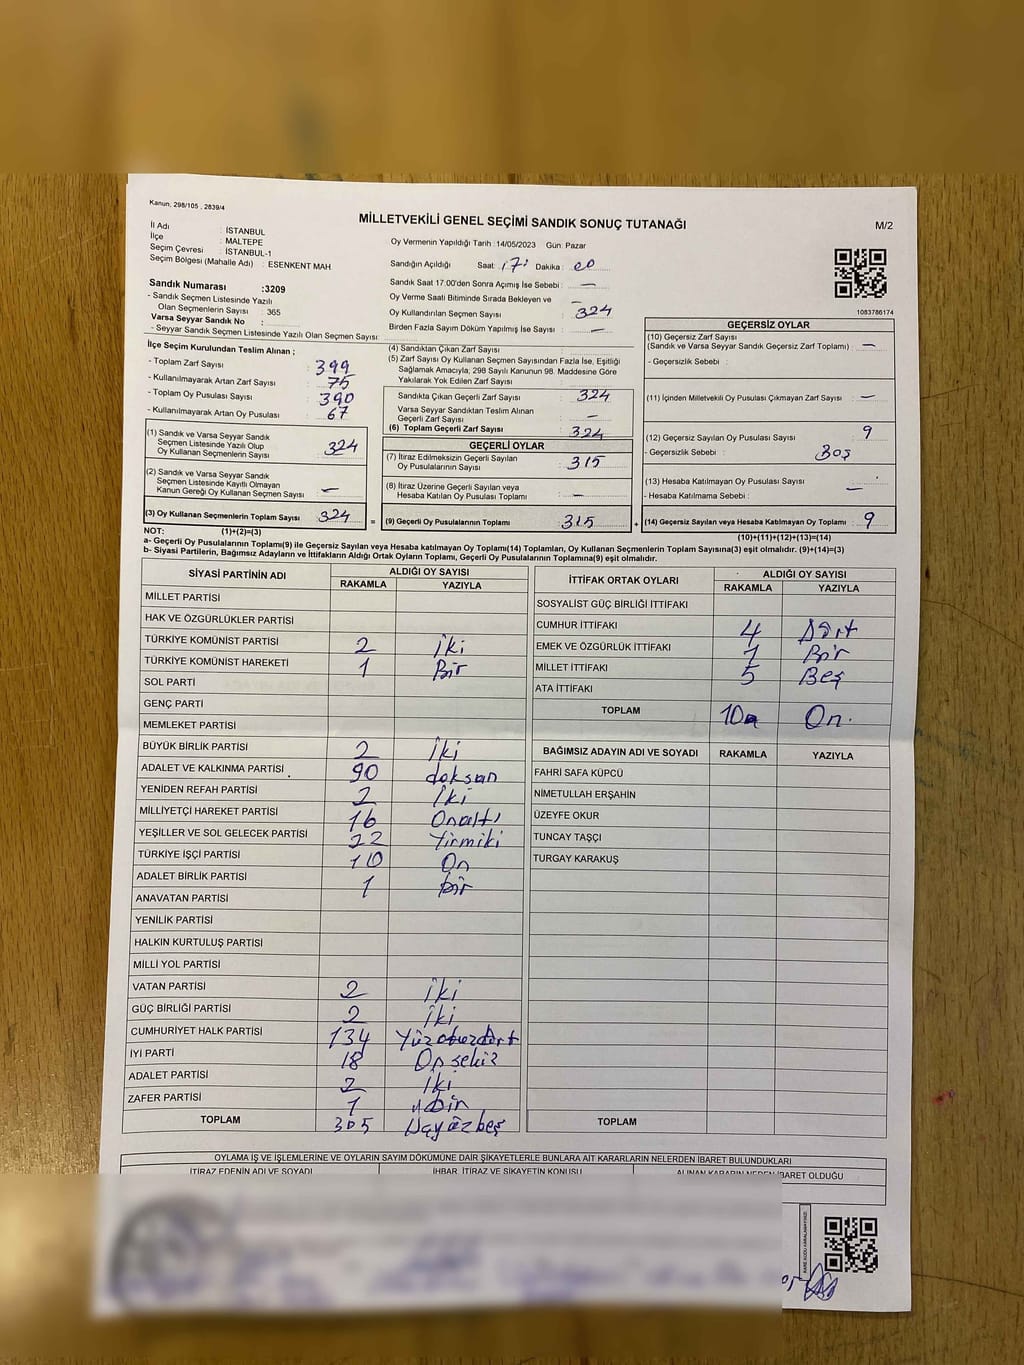 Kanun, 298/105 , 2839/4
MİLLETVEKİLİ GENEL SEÇİMİ SANDIK SONUÇ TUTANAĞI
M/2
İl Adı : İSTANBUL
İlçe : MALTEPE
Seçim Çevresi : İSTANBUL-1
Seçim Bölgesi (Mahalle Adı) : ESENKENT MAH.
Oy Vermenin Yapıldığı Tarih :14/05/2023 Gün: Pazar
Sandığın Açıldığı Saat: 17: Dakika : 00
Sandık Saat 17:00'den Sonra Açımış İse Sebebi : —
Oy Verme Saati Bitiminde Sırada Bekleyen ve
Oy Kullandırılan Seçmen Sayısı : 324
Birden Fazla Sayım Döküm Yapılmış İse Sayısı : —
1083786174
Sandık Numarası :3209
- Sandık Seçmen Listesinde Yazılı
Olan Seçmenlerin Sayısı : 365
Varsa Seyyar Sandık No :
- Seyyar Sandık Seçmen Listesinde Yazılı Olan Seçmen Sayısı:
İlçe Seçim Kurulundan Teslim Alınan ;
- Toplam Zarf Sayısı : 399
- Kullanılmayarak Artan Zarf Sayısı : 75
- Toplam Oy Pusulası Sayısı : 390
- Kullanılmayarak Artan Oy Pusulası : 67
(1) Sandık ve Varsa Seyyar Sandık
Seçmen Listesinde Yazılı Olup
Oy Kullanan Seçmenlerin Sayısı : 324
(2) Sandık ve Varsa Seyyar Sandık
Seçmen Listesinde Kayıtlı Olmayan
Kanun Gereği Oy Kullanan Seçmen Sayısı : —
(3) Oy Kullanan Seçmenlerin Toplam Sayısı : 324
(4) Sandıktan Çıkan Zarf Sayısı :
(5) Zarf Sayısı Oy Kullanan Seçmen Sayısından Fazla İse, Eşitliği
Sağlamak Amacıyla, 298 Sayılı Kanunun 98. Maddesine Göre
Yakılarak Yok Edilen Zarf Sayısı :
Sandıkta Çıkan Geçerli Zarf Sayısı : 324
Varsa Seyyar Sandıktan Teslim Alınan
Geçerli Zarf Sayısı : —
(6) Toplam Geçerli Zarf Sayısı : 324
GEÇERLİ OYLAR
(7) İtiraz Edilmeksizin Geçerli Sayılan
Oy Pusulalarının Sayısı : 315
(8) İtiraz Üzerine Geçerli Sayılan veya
Hesaba Katılan Oy Pusulası Toplamı : —
= (9) Geçerli Oy Pusulalarının Toplamı : 315 +
GEÇERSİZ OYLAR
(10) Geçersiz Zarf Sayısı
(Sandık ve Varsa Seyyar Sandık Geçersiz Zarf Toplamı) : —
- Geçersizlik Sebebi :
(11) İçinden Milletvekili Oy Pusulası Çıkmayan Zarf Sayısı : —
(12) Geçersiz Sayılan Oy Pusulası Sayısı : 9
- Geçersizlik Sebebi : Boş
(13) Hesaba Katılmayan Oy Pusulası Sayısı :
- Hesaba Katılmama Sebebi : —
(14) Geçersiz Sayılan veya Hesaba Katılmayan Oy Toplamı : 9
NOT: (1)+(2)=(3)
(10)+(11)+(12)+(13)=(14)
a- Geçerli Oy Pusulalarının Toplamı(9) ile Geçersiz Sayılan veya Hesaba katılmayan Oy Toplamı(14) Toplamları, Oy Kullanan Seçmenlerin Toplam Sayısına(3) eşit olmalıdır. (9)+(14)=(3)
b- Siyasi Partilerin, Bağımsız Adayların ve İttifakların Aldığı Ortak Oyların Toplamı, Geçerli Oy Pusulalarının Toplamına(9) eşit olmalıdır.
SİYASİ PARTİNİN ADI ALDIĞI OY SAYISI
RAKAMLA YAZIYLA
MİLLET PARTİSİ
HAK VE ÖZGÜRLÜKLER PARTİSİ
TÜRKİYE KOMÜNİST PARTİSİ 2 İki
TÜRKİYE KOMÜNİST HAREKETİ 1 Bir
SOL PARTİ
GENÇ PARTİ
MEMLEKET PARTİSİ
BÜYÜK BİRLİK PARTİSİ 2 İki
ADALET VE KALKINMA PARTİSİ 90 doksan
YENİDEN REFAH PARTİSİ 2 İki
MİLLİYETÇİ HAREKET PARTİSİ 16 Onaltı
YEŞİLLER VE SOL GELECEK PARTİSİ 22 Yirmiki
TÜRKİYE İŞÇİ PARTİSİ 10 On
ADALET BİRLİK PARTİSİ 1 bir
ANAVATAN PARTİSİ
YENİLİK PARTİSİ
HALKIN KURTULUŞ PARTİSİ
MİLLİ YOL PARTİSİ
VATAN PARTİSİ 2 İki
GÜÇ BİRLİĞİ PARTİSİ 2 İki
CUMHURİYET HALK PARTİSİ 134 Yüzotuzdört
İYİ PARTİ 18 Onsekiz
ADALET PARTİSİ 2 İki
ZAFER PARTİSİ 1 bir
TOPLAM 305 Üçyüzbeş
İTTİFAK ORTAK OYLARI ALDIĞI OY SAYISI
RAKAMLA YAZIYLA
SOSYALİST GÜÇ BİRLİĞİ İTTİFAKI
CUMHUR İTTİFAKI 4 Dört
EMEK VE ÖZGÜRLÜK İTTİFAKI 1 Bir
MİLLET İTTİFAKI 5 Beş
ATA İTTİFAKI
TOPLAM 10 On.
BAĞIMSIZ ADAYIN ADI VE SOYADI RAKAMLA YAZIYLA
FAHRİ SAFA KÜPCÜ
NİMETULLAH ERŞAHİN
ÜZEYFE OKUR
TUNCAY TAŞÇI
TURGAY KARAKUŞ
TOPLAM
OYLAMA İŞ VE İŞLEMLERİNE VE OYLARIN SAYIM DÖKÜMÜNE DAİR ŞİKAYETLERLE BUNLARA AİT KARARLARIN NELERDEN İBARET BULUNDUKLARI
İTİRAZ EDENİN ADI VE SOYADI İHBAR, İTİRAZ VE ŞİKAYETİN KONUSU ALINAN KARARIN NEDEN İBARET OLDUĞU